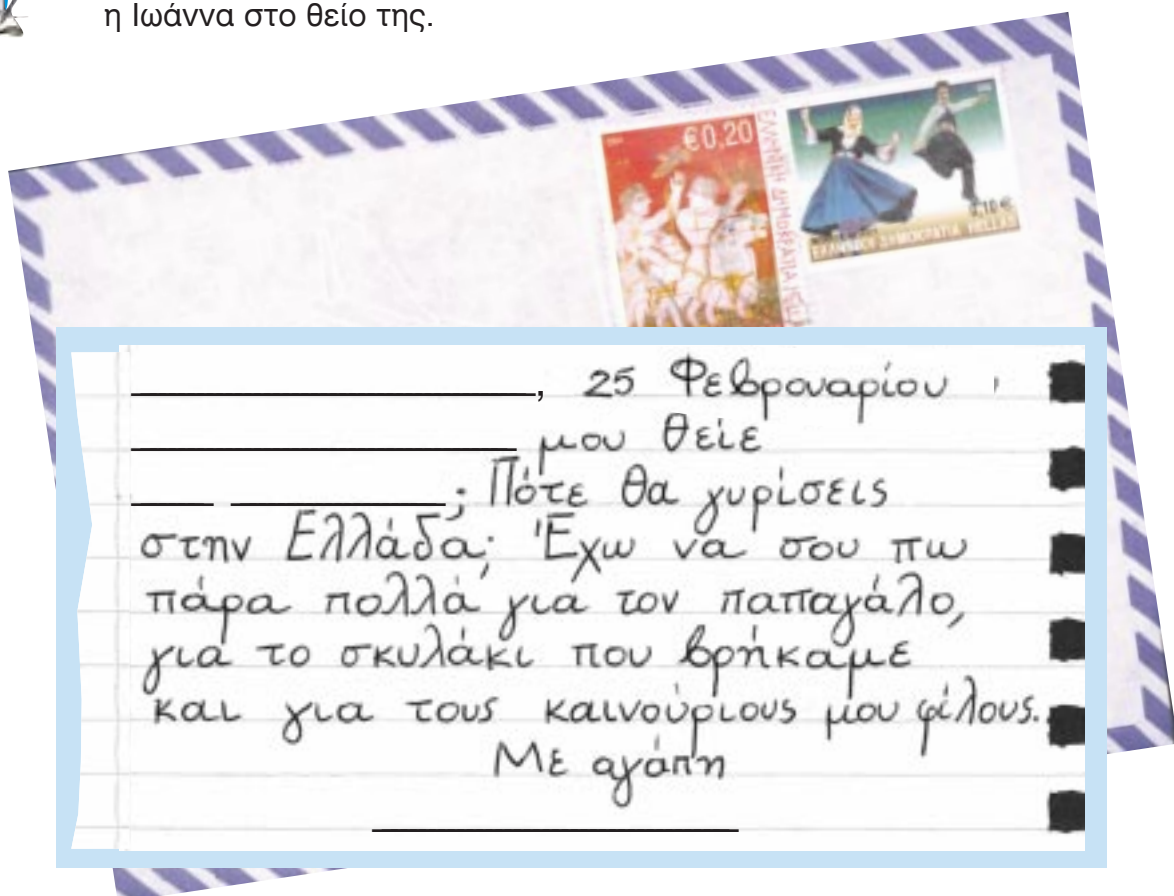 η Ιωάννα στο θείο της.
€0,20
ΕΛΛΗΝΙΚΗ ΔΗΜΟΚΡΑΤΙΑ
0,10 €
ΕΛΛΗΝΙΚΗ ΔΗΜΟΚΡΑΤΙΑ HELLAS
, 25 Φεβρουαρίου
μου θείε
; Πότε θα γυρίσεις
στην Ελλάδα; Έχω να σου πω
πάρα πολλά για τον παπαγάλο,
για το σκυλάκι που βρήκαμε
και για τους καινούριους μου φίλους.
Με αγάπη